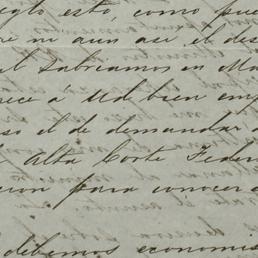 esto, como pue
mi aun asi el des
Sabriamos en Ma
rece à Ud bien em
so el de demandar a
Alta Corte Feder
cion para conocer d
debemos economis